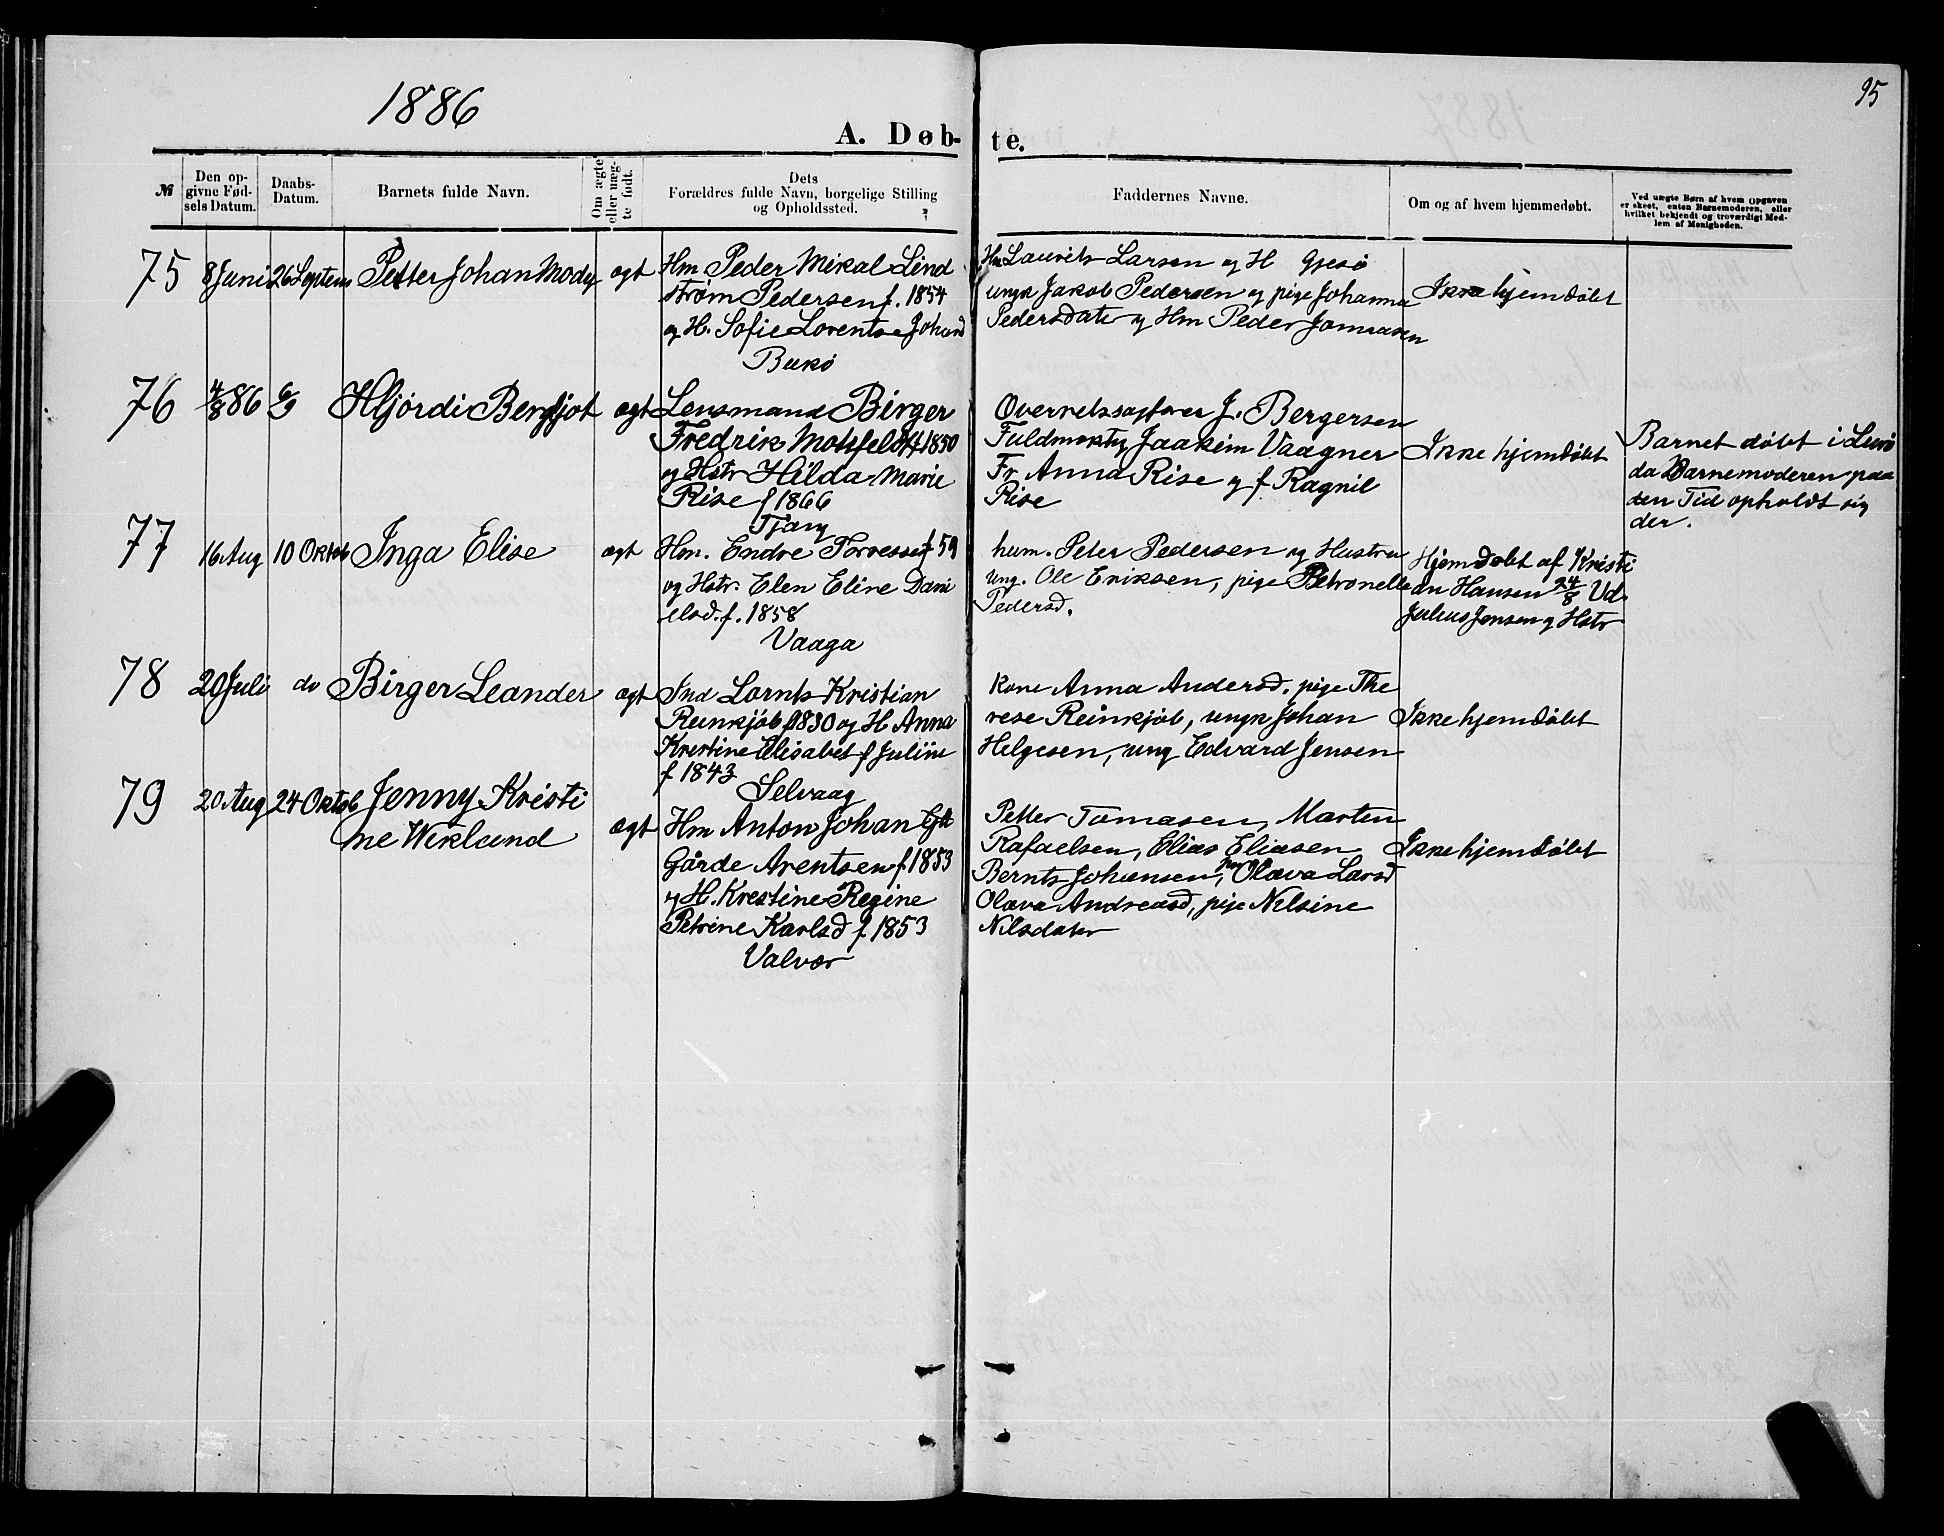 1886
95
A. Døb-te.
№
Den opgivne Fødsels Datum.
Daabs-Datum.
Barnets fulde Navn.
Om ægte eller uægte født.
Dets
Forældres fulde Navn, borgelige Stilling
og Opholdssted.
Faddernes Navne.
Om og af hvem hjemmedøbt.
Ved uægte Børn af hvem Opgaven
er skeet, enten Barnemoderen, eller
hvilket bekjendt og troværdigt Med-
lem af Menigheden.
75 8 Juni 26 Septem Petter Johan Mody ægt
Hm Peder Mikal Lind
strøm Pedersen f. 1854
og H. Sofie Lorentse Johand
Bukø
Hm Laurits Larsen og H Gjesø
ungk Jakob Pedersen og pige Johanna
Pedersdater og Hm Peder Jonassen
Ikke hjemdøbt
76 4/8 86 6/9 Hjørdi Bergljot ægt
Lensmand Birger
Fredrik Motzfeldt f 1850
og Hstr Hilda Marie
Rise f 1866
Tjøng
Overretssagfører J. Bergersen
Fuldmektg Jaakim Vaagner
Fr Anna Rise og f Ragnil
Rise
Ikke hjemdøbt
Barnet døbt i Lurø
da Barnemoderen paa
den Tid opholdt sig
der.
77 16 Aug 10 Oktob Inga Elise ægt
Hm. Endre Torressen f 59
og Hstr. Elen Eline Dani
elsd. f. 1858
Vaaga
husm. Peter Pedersen og Hustru
ung. Ole Eriksen, pige Petronelle
Pedersd.
Hjemdøbt af Kristi
an Hansen 24/8 Vd.
Julius Jensen og Hstr
78 20 Juli do Birger Leander ægt
Ind Lornts Kristian
Reinkjøb f 1830 og H Anna
Krestine Elisabet f Juliin
f 1843
Selvaag
Kone Anna Andersd. pige The
rese Reinkjøb, ungk Johan
Helgesen, ung Edvard Jensen
Ikke hjemdøbt
79 20 Aug 24 Oktob Jenny Kristi
ne Wiklund
ægt
Hm Anton Johan
Gårde Arentsen f. 1853
og H. Krestine Regine
Petrine Karlsd f. 1853
Valvær
Petter Tomasen, Marten
Rafaelsen, Elias Eliasen
Bernts Johansen, Olava Larsd
Olava Andreasd, pige Nilsine
Nilsdater
Ikke hjemdøbt